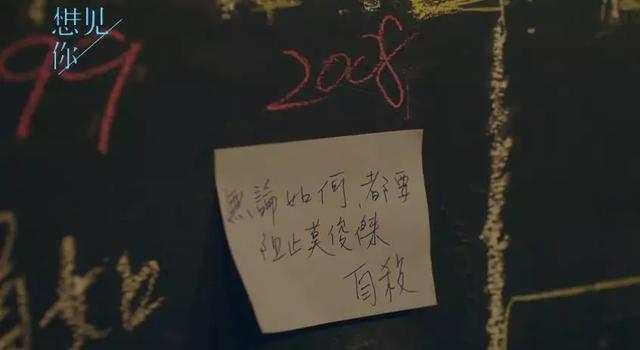 想见
你
99
2008
無論如何,都要
阻止莫俊傑
自殺